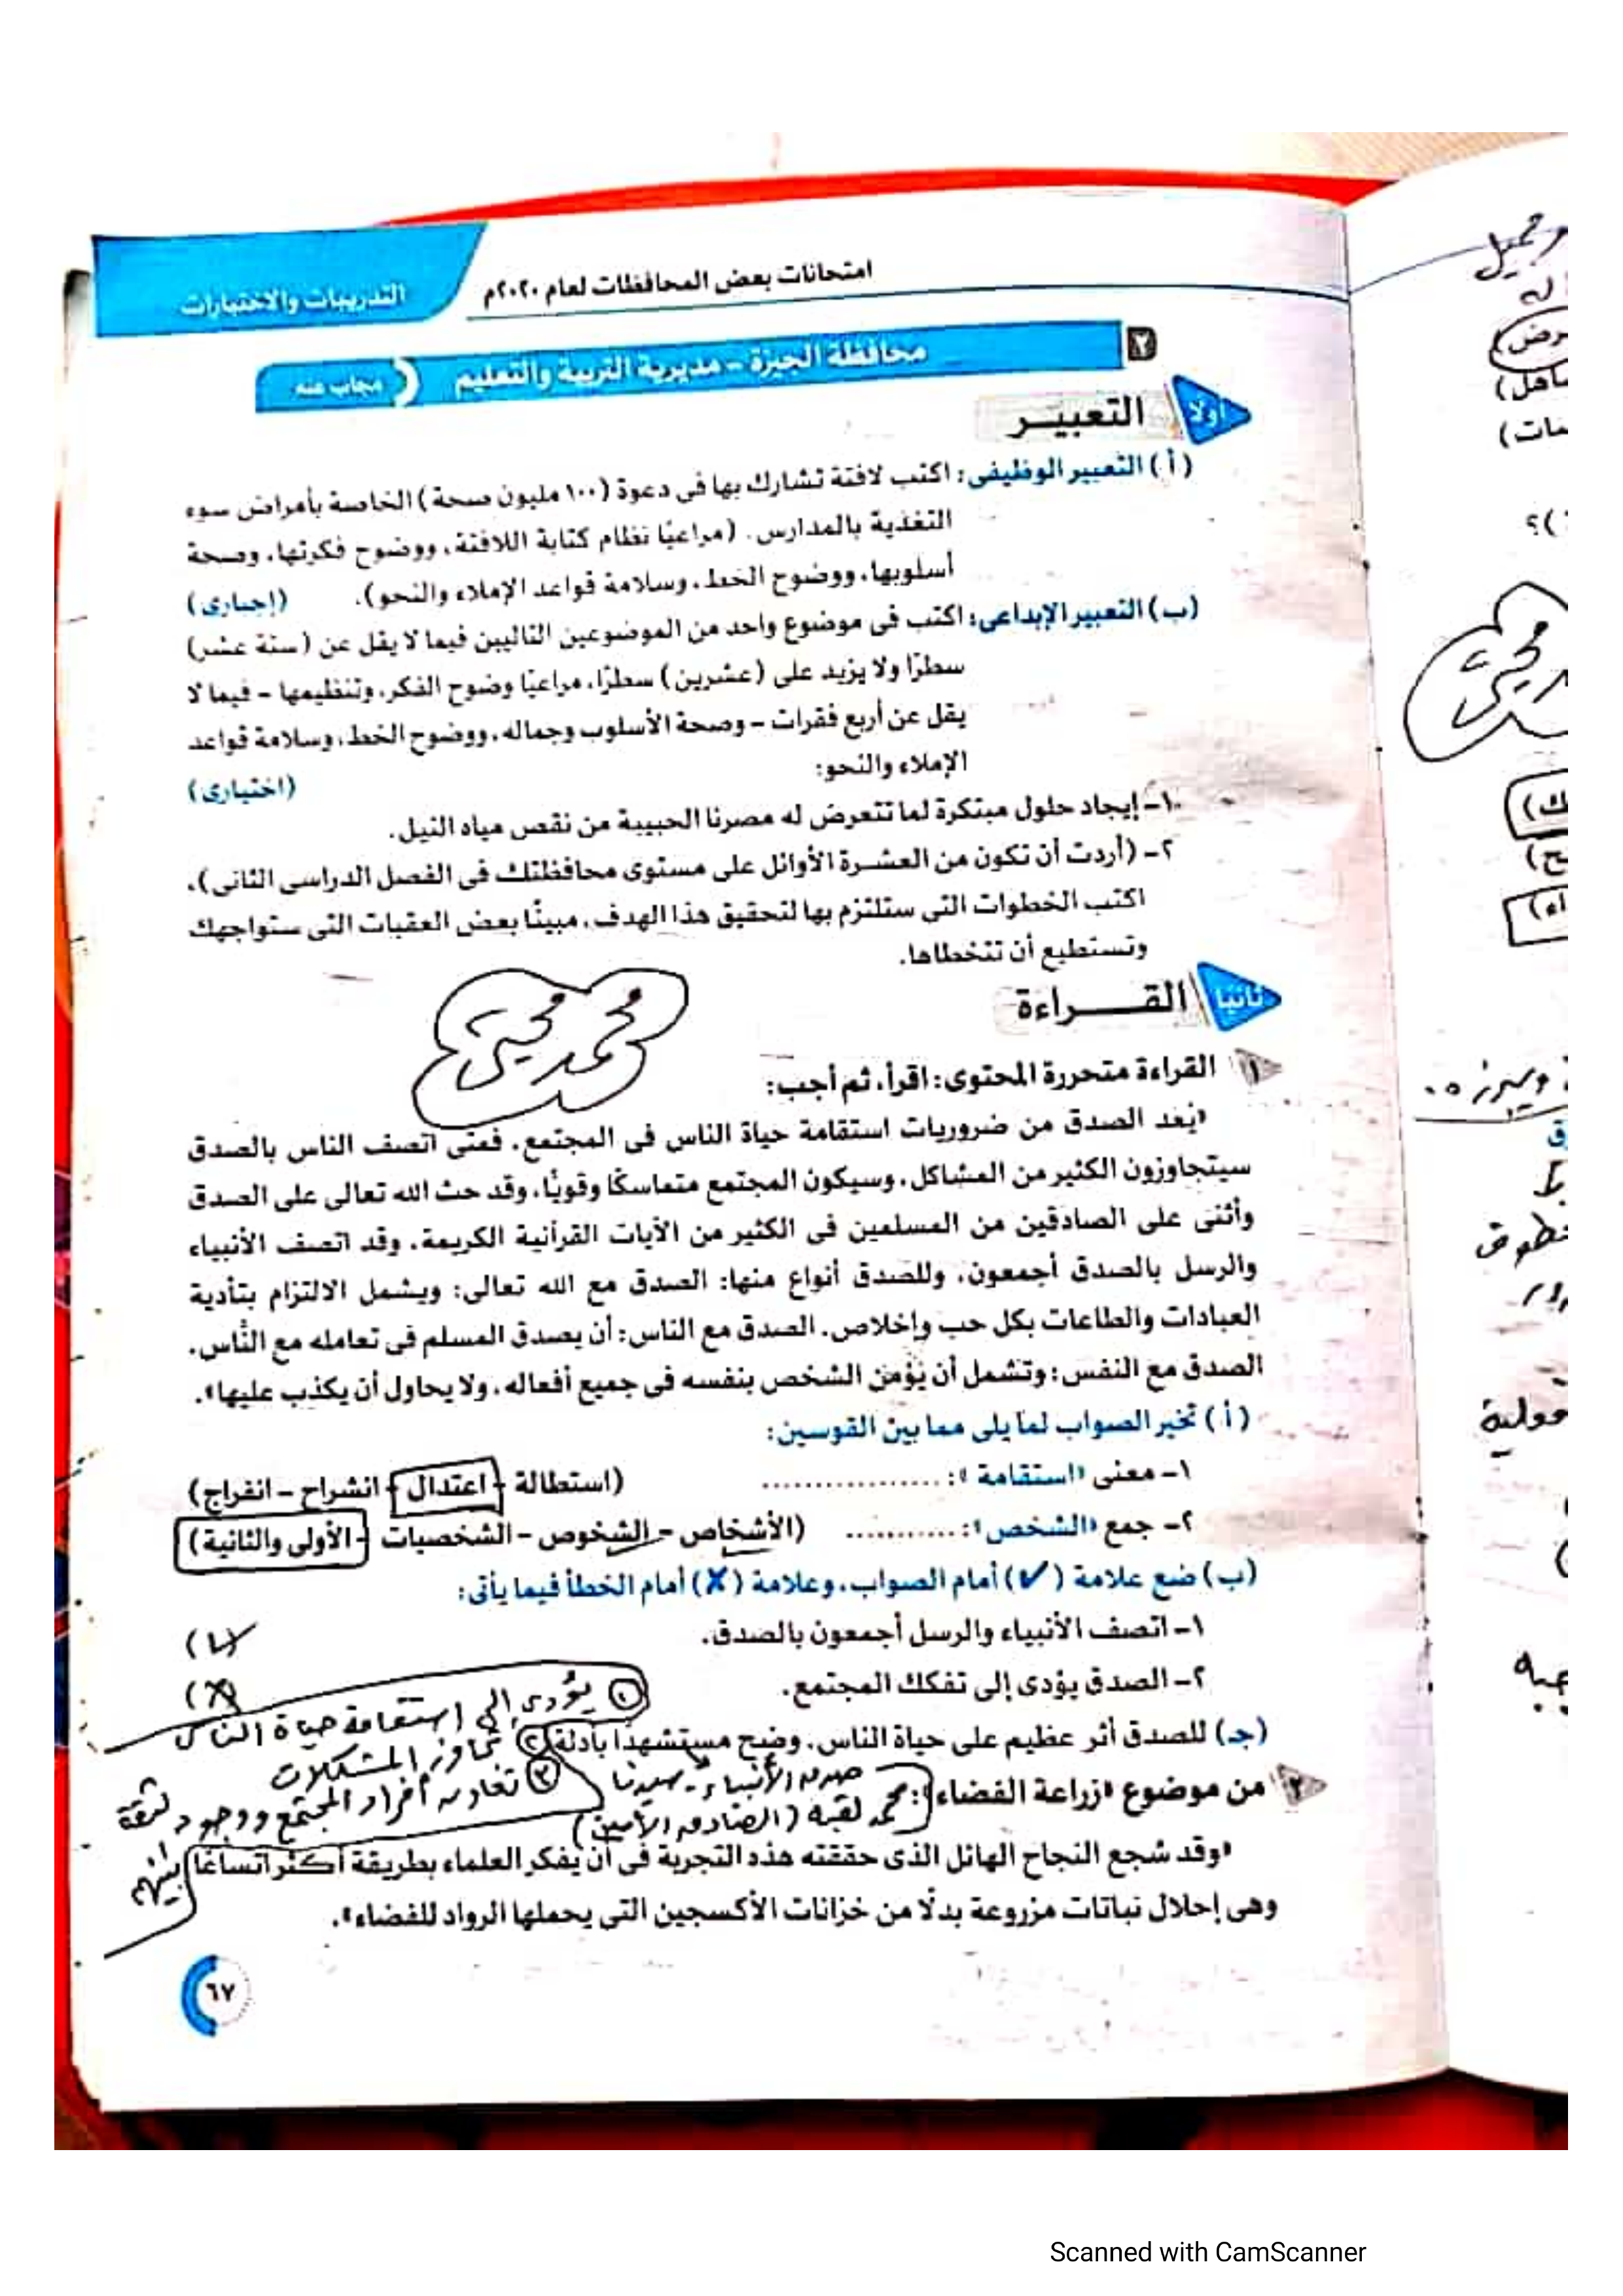 امتحانات بعض المحافظات لعام ٢٠٢٠م
التدريبات والاختبارات
٢
محافظة الجيزة – مديرية التربية والتعليم
مجاب عنه
أولا
التعبيـر
(أ) التعبير الوظيفى: اكتب لافتة تشارك بها فى دعوة (١٠٠ مليون صحة) الخاصة بأمراض سوء
التغذية بالمدارس. (مراعيًا نظام كتابة اللافتة، ووضوح فكرتها، وصحة
أسلوبها، ووضوح الخط، وسلامة قواعد الإملاء والنحو). (إجبارى)
(ب) التعبير الإبداعى: اكتب فى موضوع واحد من الموضوعين التاليين فيما لا يقل عن (ستة عشر)
سطرًا ولا يزيد على (عشرين) سطرًا، مراعيًا وضوح الفكر، وتنظيمها – فيما لا
يقل عن أربع فقرات – وصحة الأسلوب وجماله، ووضوح الخط، وسلامة قواعد
الإملاء والنحو: (اختيارى)
١– إيجاد حلول مبتكرة لما تتعرض له مصرنا الحبيبة من نقص مياه النيل.
٢– (أردت أن تكون من العشرة الأوائل على مستوى محافظتك فى الفصل الدراسى الثانى)،
اكتب الخطوات التى ستلتزم بها لتحقيق هذا الهدف، مبينًا بعض العقبات التى ستواجهك
وتستطيع أن تتخطاها.
ثانيا
القـــراءة
محمد محيى
١ القراءة متحررة المحتوى: اقرأ، ثم أجب:
«يُعد الصدق من ضروريات استقامة حياة الناس فى المجتمع، فمتى اتصف الناس بالصدق
سيتجاوزون الكثير من المشاكل، وسيكون المجتمع متماسكًا وقويًا، وقد حث الله تعالى على الصدق
وأثنى على الصادقين من المسلمين فى الكثير من الآيات القرآنية الكريمة، وقد اتصف الأنبياء
والرسل بالصدق أجمعون، وللصدق أنواع منها: الصدق مع الله تعالى: ويشمل الالتزام بتأدية
العبادات والطاعات بكل حب وإخلاص. الصدق مع الناس: أن يصدق المسلم فى تعامله مع النَّاس.
الصدق مع النفس: وتشمل أن يؤمن الشخص بنفسه فى جميع أفعاله، ولا يحاول أن يكذب عليها».
(أ) تخير الصواب لما يلى مما بين القوسين:
١– معنى «استقامة»: .................. (استطالة – اعتدال – انشراح – انفراج)
٢– جمع «الشخص»: ........... (الأشخاص – الشخوص – الشخصيات – الأولى والثانية)
(ب) ضع علامة (✓) أمام الصواب، وعلامة (✗) أمام الخطأ فيما يأتى:
١– اتصف الأنبياء والرسل أجمعون بالصدق. (✓)
٢– الصدق يؤدى إلى تفكك المجتمع. (✗)
١ يؤدى إلى استقامة حياة الناس
(جـ) للصدق أثر عظيم على حياة الناس. وضح مستشهدًا بأدلة.
٢ تجاوز المشكلات
٣ تعاون أفراد المجتمع ووجود ثقة بينهم
صدق الأنبياء – سيدنا
محمد لقبه (الصادق الأمين)
٢ من موضوع «زراعة الفضاء»:
«وقد شجع النجاح الهائل الذى حققته هذه التجربة فى أن يفكر العلماء بطريقة أكثر اتساعًا
وهى إحلال نباتات مزروعة بدلًا من خزانات الأكسجين التى يحملها الرواد للفضاء».
٦٧
Scanned with CamScanner